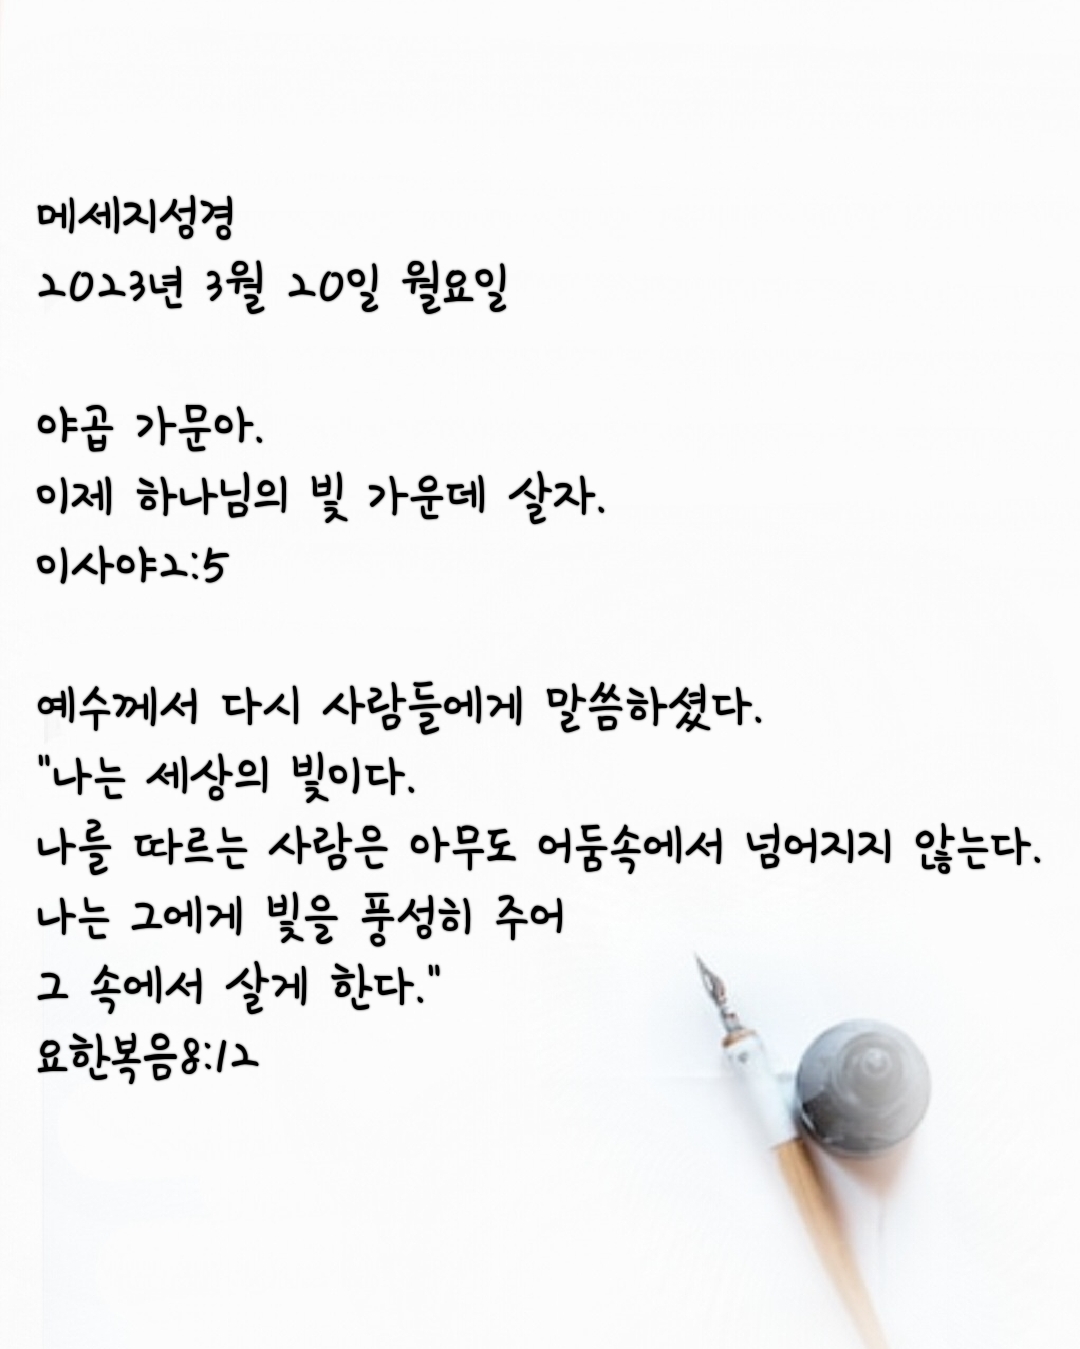 메세지성경
2023년 3월 20일 월요일
야곱 가문아.
이제 하나님의 빛 가운데 살자.
이사야2:5
예수께서 다시 사람들에게 말씀하셨다.
"나는 세상의 빛이다.
나를 따르는 사람은 아무도 어둠속에서 넘어지지 않는다.
나는 그에게 빛을 풍성히 주어
그 속에서 살게 한다."
요한복음8:12